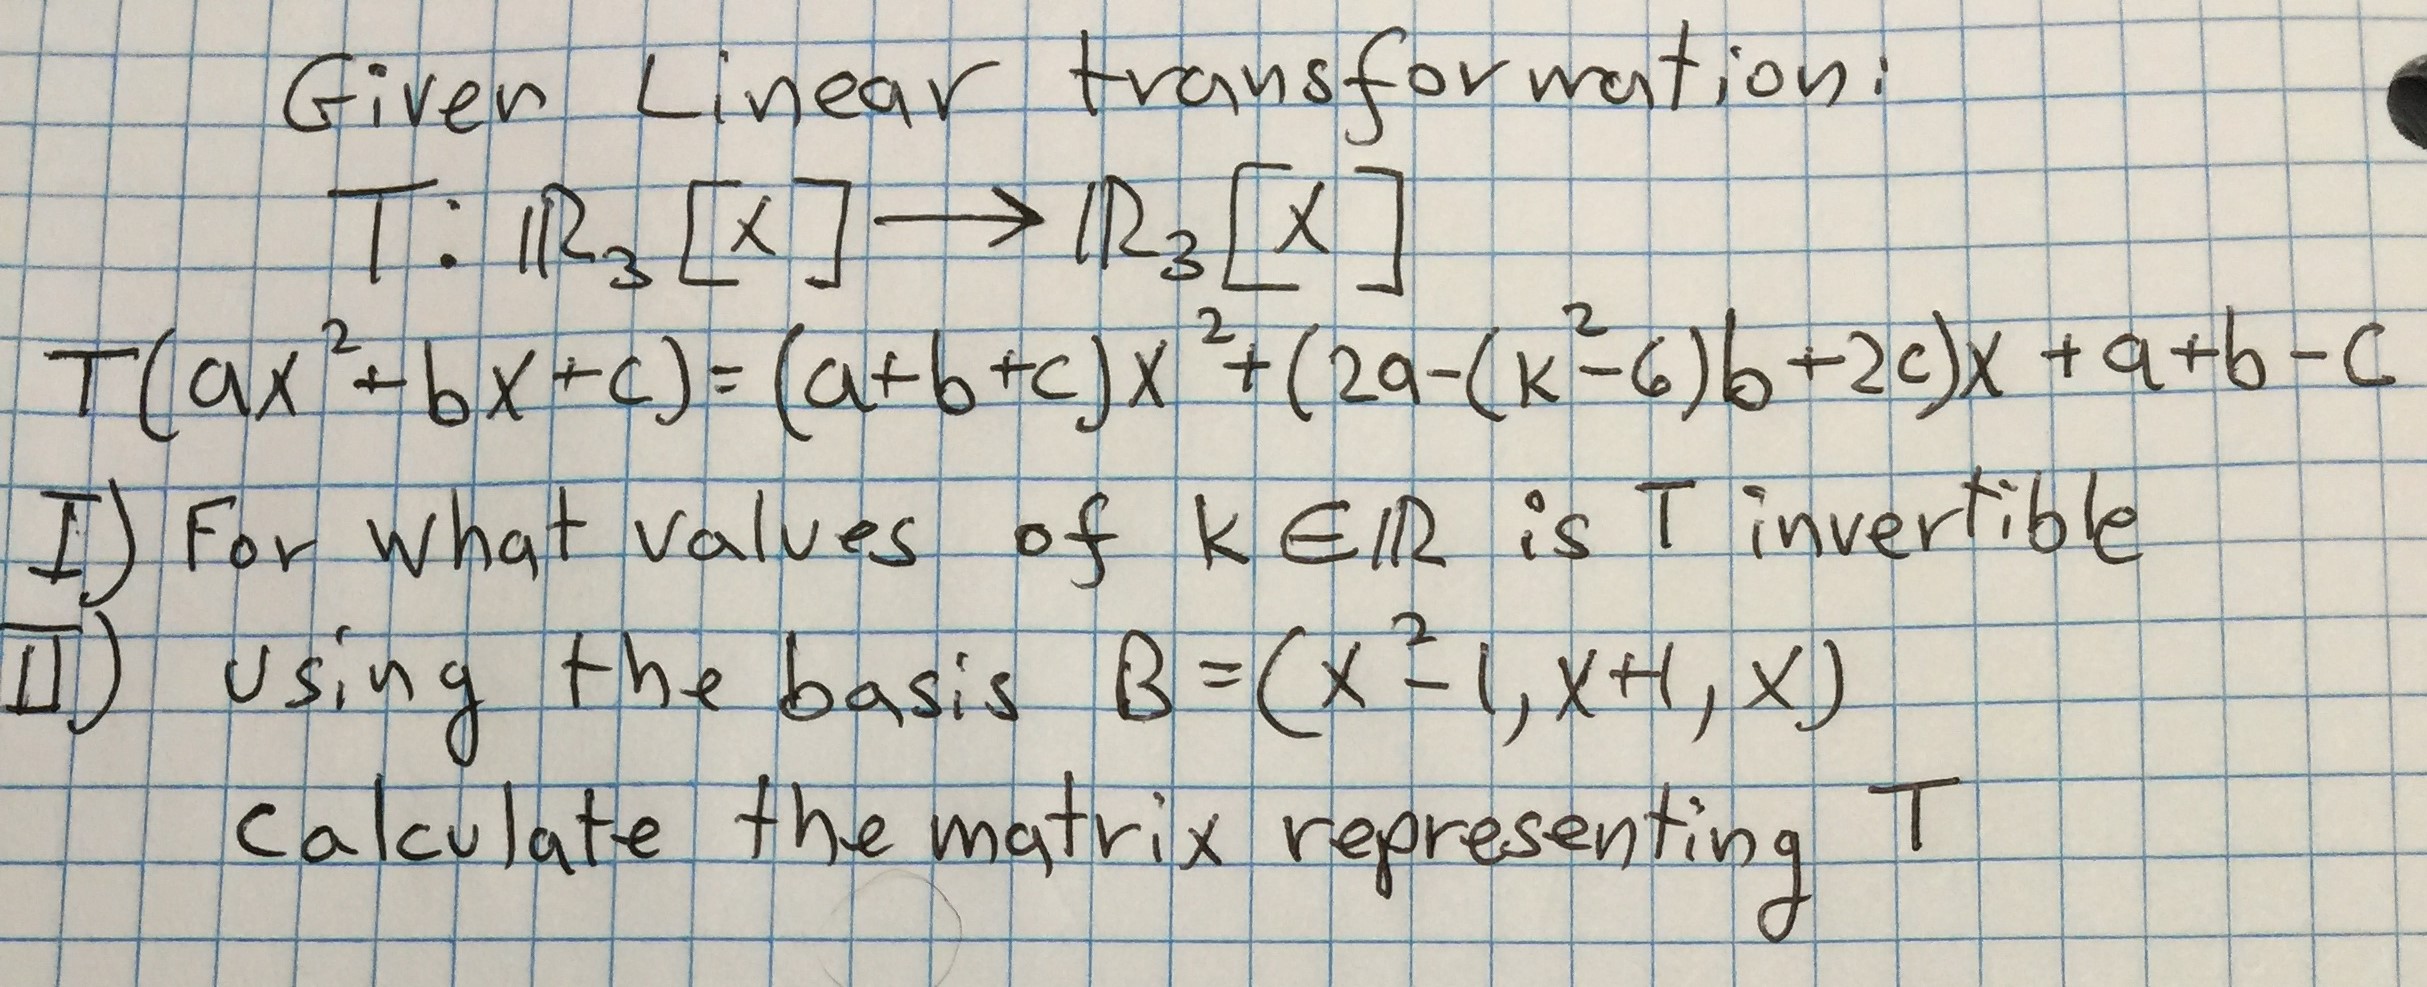 Given Linear transformation:
T: ℝ₃[x] → ℝ₃[x]
T(ax²+bx+c)=(a+b+c)x²+(2a-(k²-6)b+2c)x+a+b-c
I) For what values of k∈ℝ is T invertible
II) Using the basis B=(x²-1, x+1, x)
calculate the matrix representing T